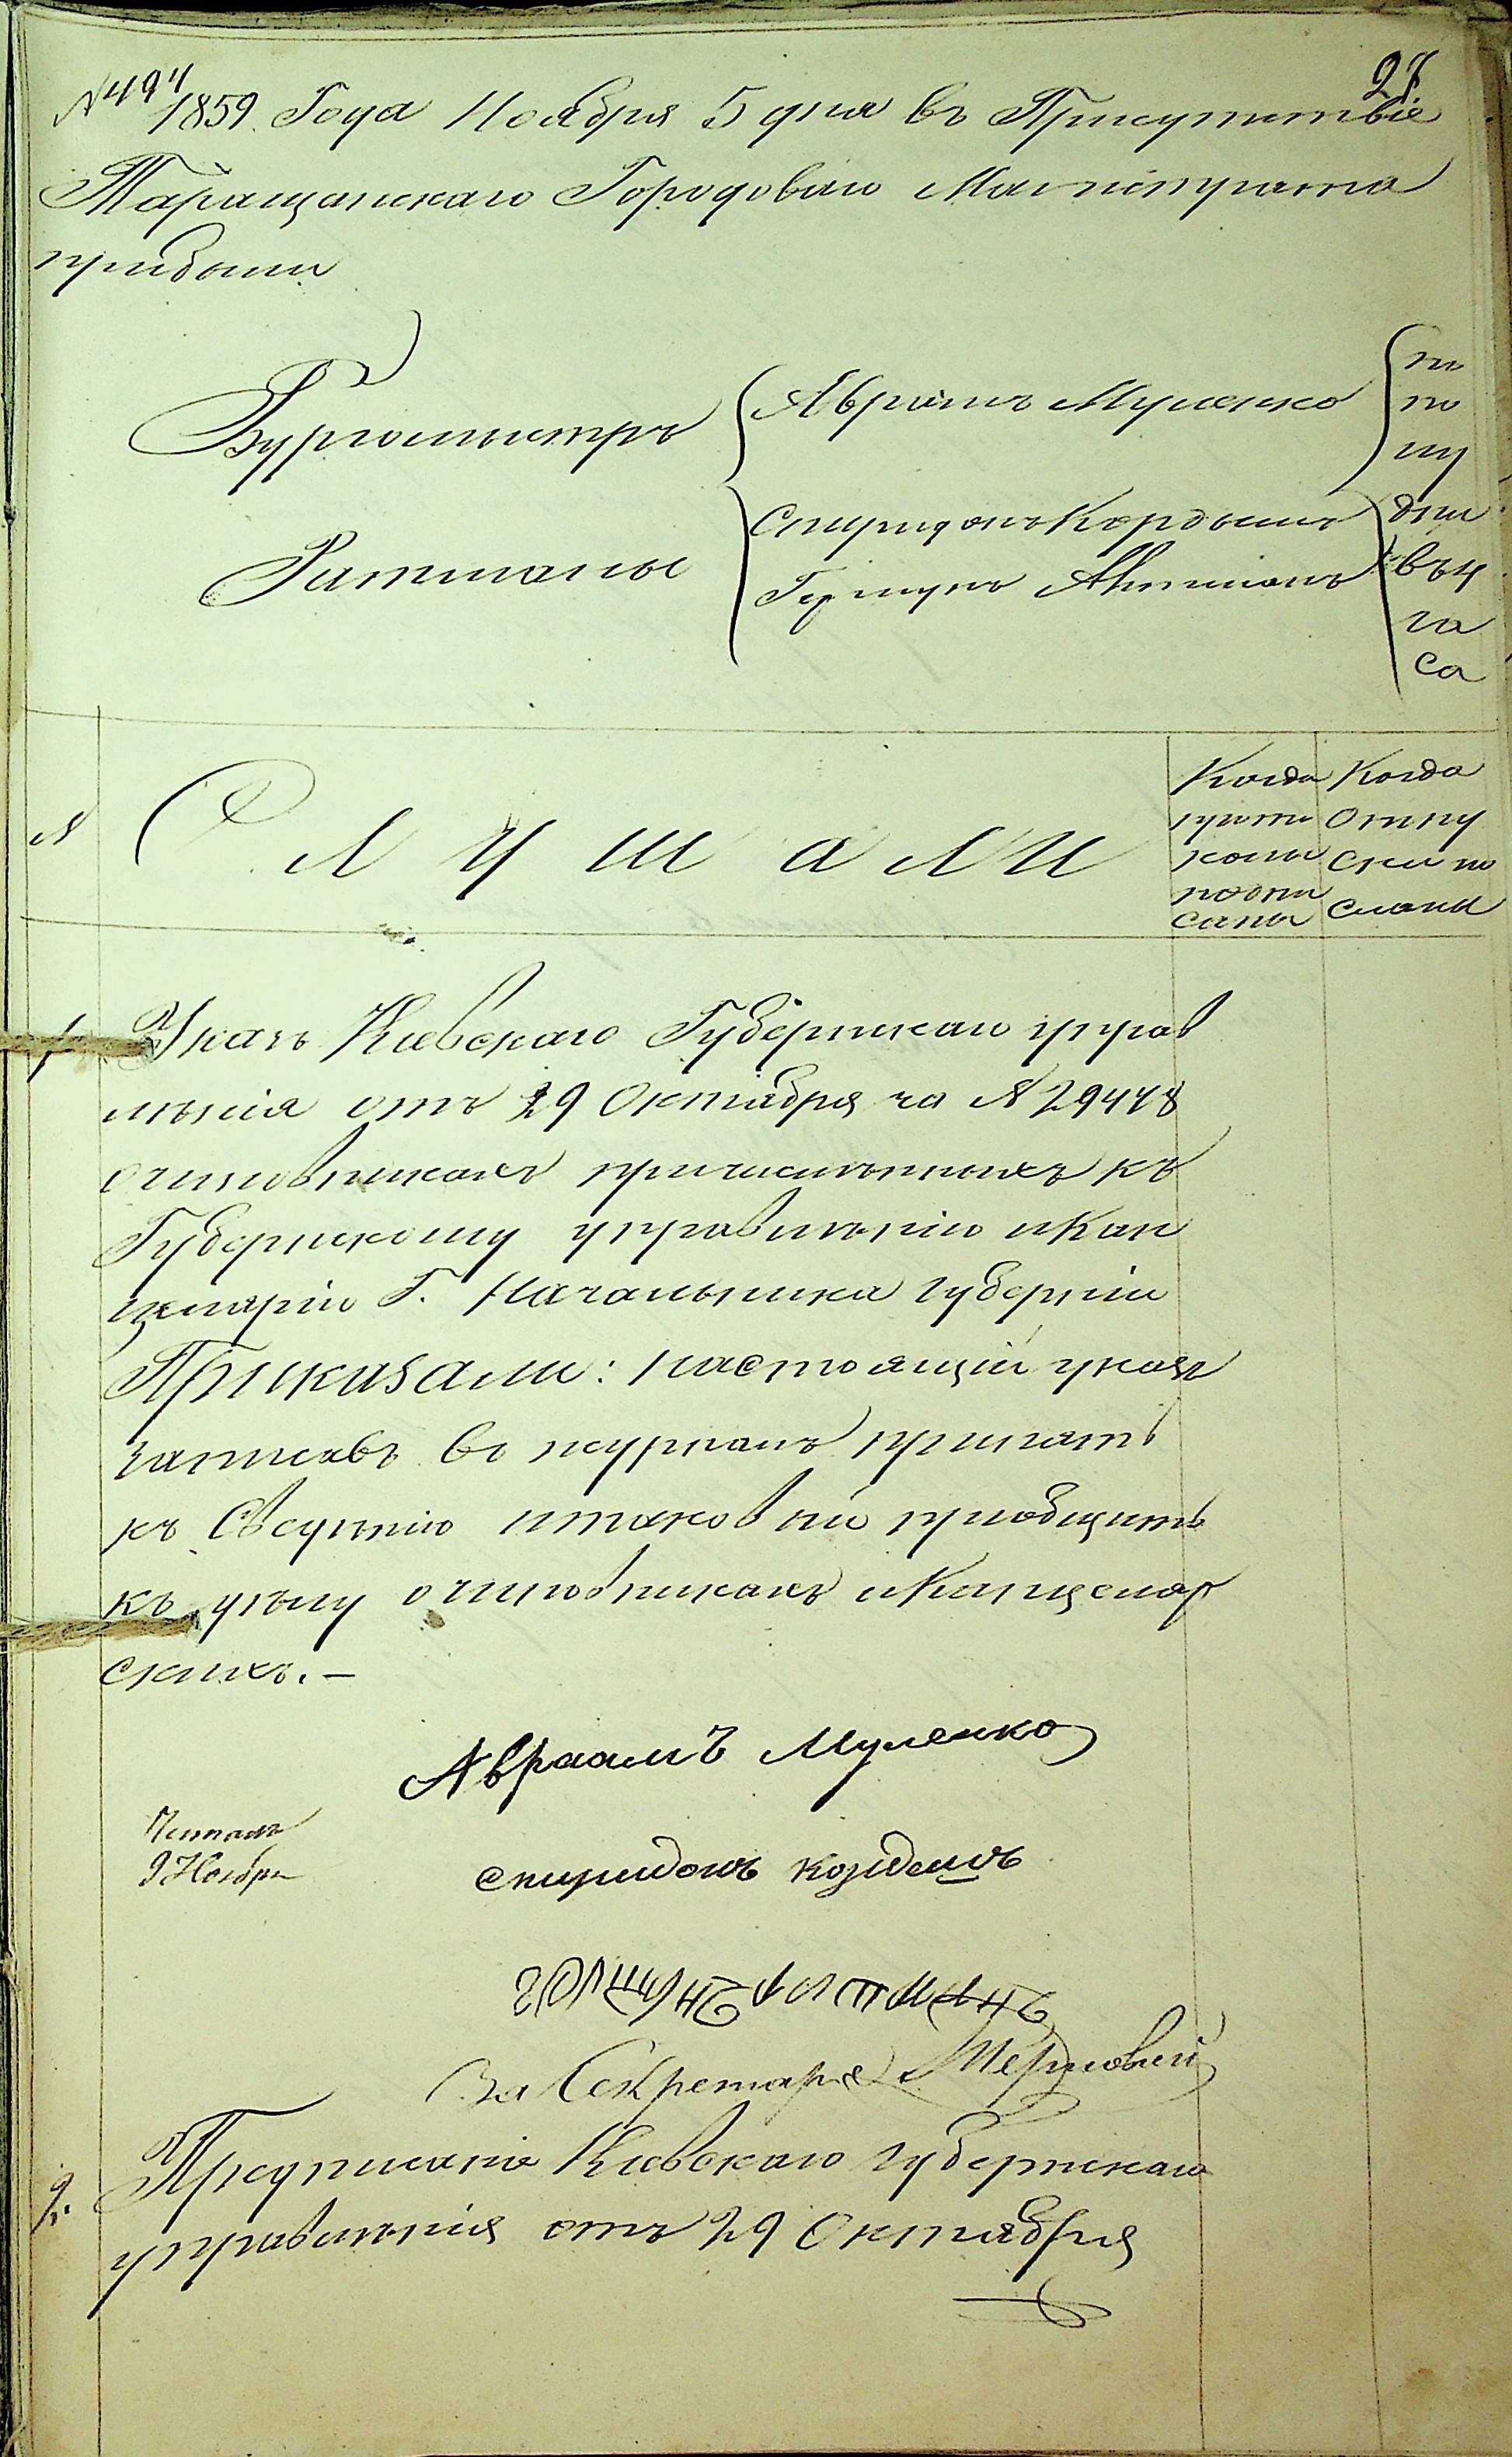 27
№ 494
1859 Года Ноября 5 дня въ Присутствіе
Таращанскаго Городоваго Магистрата
прибыли
Бургомистръ
Авраамъ Муленко
по
по
лу
Ратманы
Спиридонъ
дни
въ 4
ча
са
№
Слушали
Когда
прото
колы
подпи
саны
Когда
отпу
ски по
сланы
1.
Указъ Кіевскаго Губернскаго управ
ленія отъ 29 Октября за № 29448
о чиновникахъ причисленныхъ къ
Губернскому управленію и Кан
целяріи Г. Начальника губерніи
Приказали: настоящій указъ
записавъ въ журналъ принять
къ Свѣденію и таковый пріобщить
къ дѣлу о чиновникахъ и Канцеляр
скихъ. —
Авраамъ Муленко
Читалъ
9 Ноября
спиридонъ
За Секретаря
2.
Предписаніе Кіевскаго губернскаго
управленія отъ 29 Октября